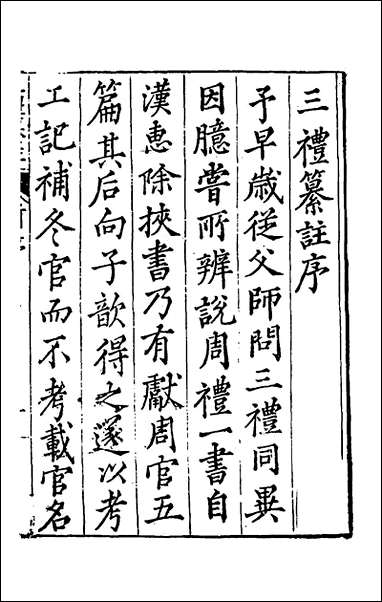 三禮纂註序
予早歲從父師問三禮同異
因臆嘗所辨說周禮一書自
漢惠除挾書乃有獻周官五
篇其后向子歆得之遂以考
工記補冬官而不考載官名